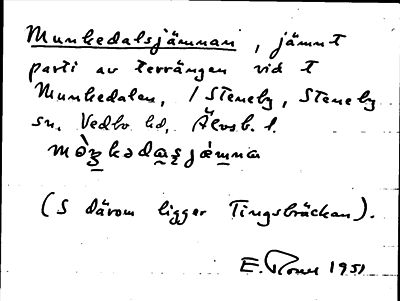 Munkedalsjämnan, jämnt
parti av terrängen vid t
Munkedalen, i Steneby, Steneby
sn, Vedbo hd, Älvsb. l.
(S därom ligger Tingsbräckan).
E. 1951